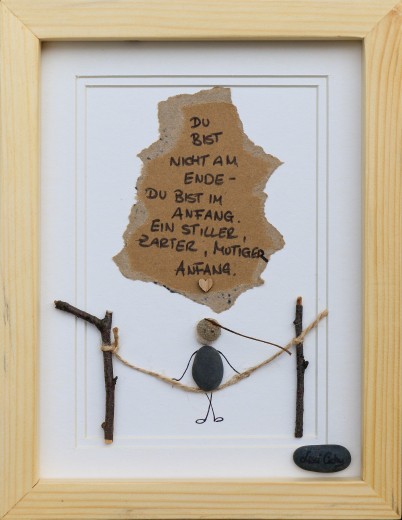 DU
BIST
NICHT AM
ENDE -
DU BIST IM
ANFANG.
EIN STILLER,
ZARTER, MUTIGER
ANFANG.